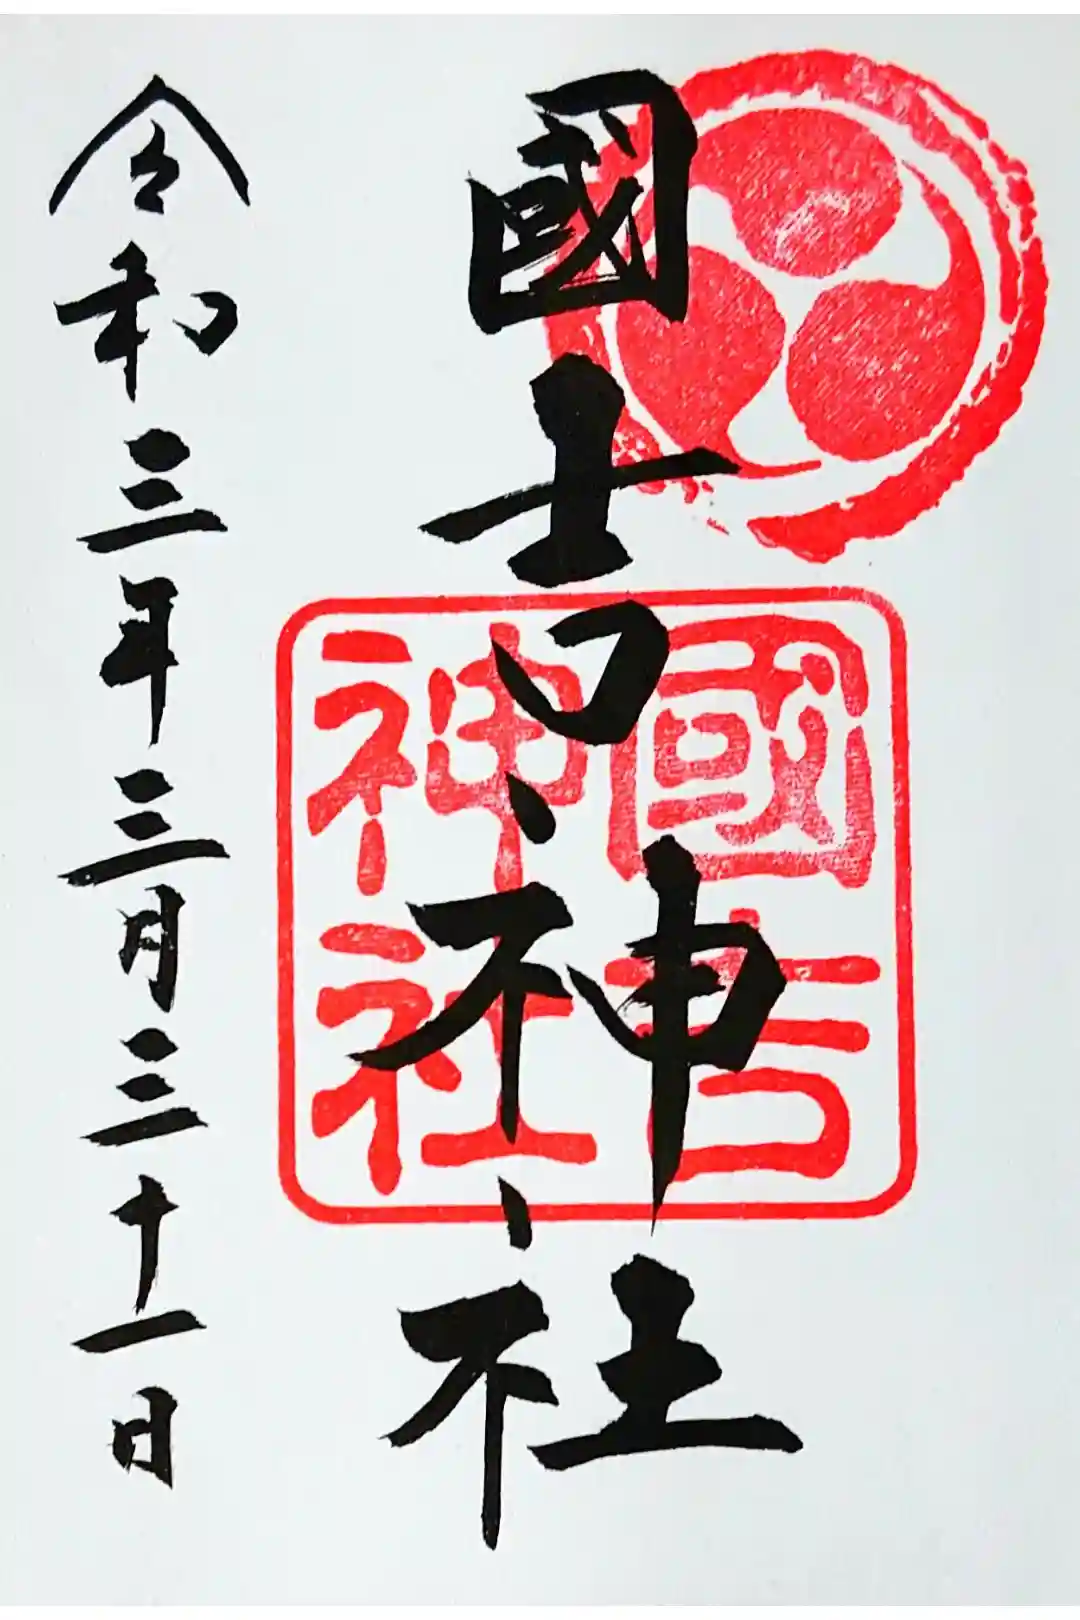 國吉神社
國吉
神社
令和三年三月三十一日